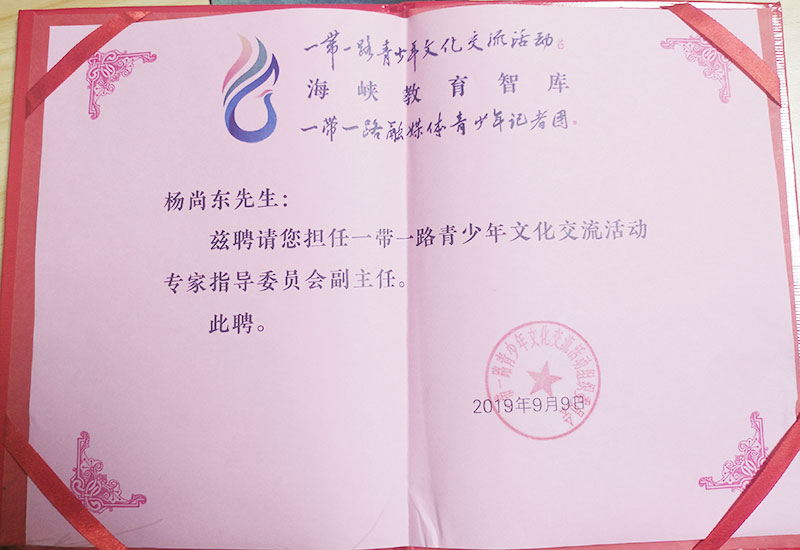 一带一路青少年文化交流活动
海峡教育智库
一带一路融媒体青少年记者团。
杨尚东先生：
兹聘请您担任一带一路青少年文化交流活动
专家指导委员会副主任。
此聘。
一路青少年文化交流活动组织委员会
2019年9月9日